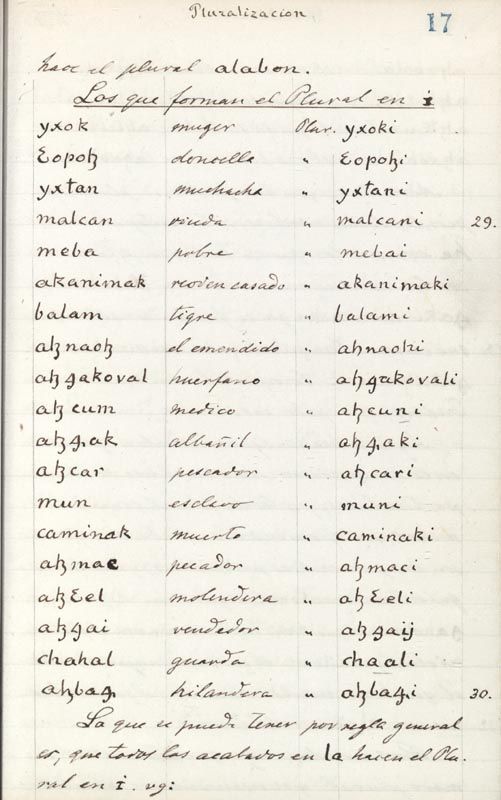 Pluralizacion
17
hace el plural alabon.
Los que forman el Plural en i
yxok muger Plur. yxoki
Ɛopoꜧ doncella " Ɛopoꜧi
yxtan muchacha " yxtani
malcan viuda " malcani 29.
meba pobre " mebai
akanimak recien casado " akanimaki
balam tigre " balami
aꜧnaoꜧ el entendido " ahnaoꜧi
aꜧꜭakoval huerfano " aꜧꜭakovali
aꜧcum medico " aꜧcuni
aꜧꜭak albañil " aꜧꜭaki
aꜧcar pescador " aꜧcari
mun esclavo " muni
caminak muerto " caminaki
aꜧmac pecador " aꜧmaci
aꜧƐel molendera " aꜧƐeli
aꜧꜭai vendedor " aꜧꜭaij
chahal guarda " chaali
aꜧbaꜭ hilandera " aꜧbaꜭi 30.
La que se puede tener por regla general
es, que todos los acabados en la hacen el Plu-
ral en i. vg: